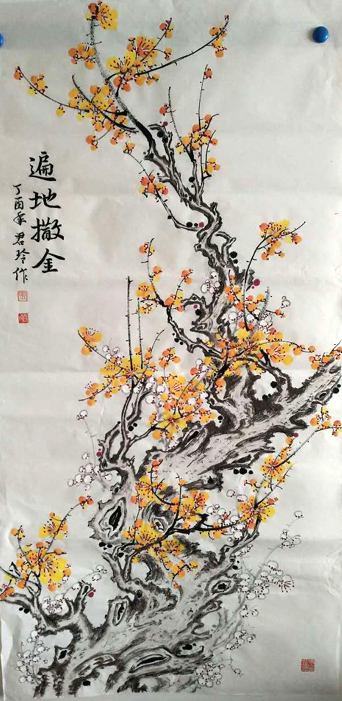 遍地撒金
丁酉年君玲作